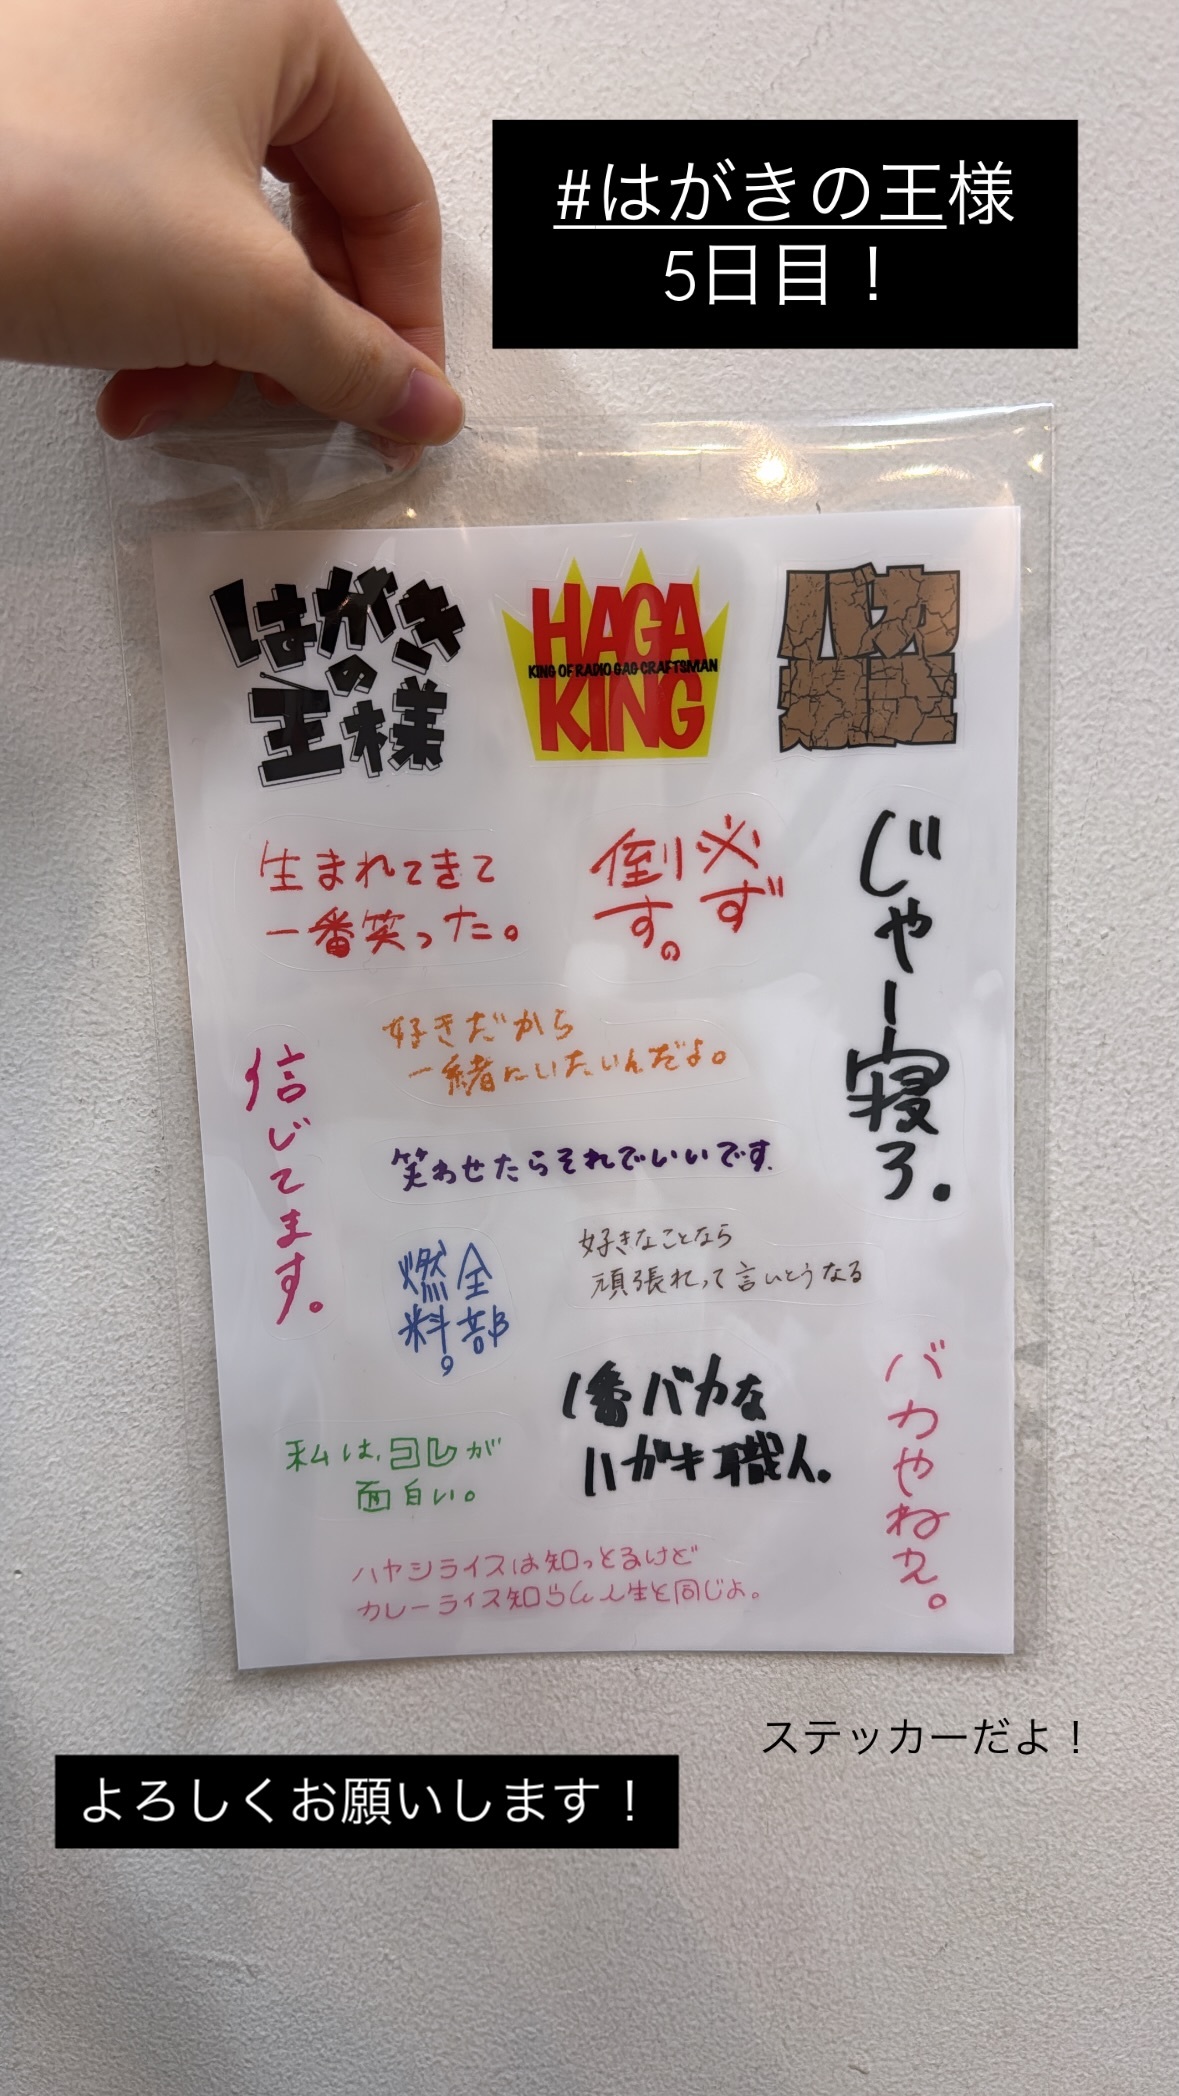 #はがきの王様
5日目！
はがき
の
王様
HAGA
KING OF RADIO GAG CRAFTSMAN
KING
バカ
生まれてきて
一番笑った。
必ず
倒す。
じゃー寝ろ。
好きだから
一緒にいたいんだよ。
信じてます。
笑わせたらそれでいいです.
好きなことなら
頑張れって言いとうなる
全部
燃料。
1番バカな
ハガキ職人。
バカやねえ。
私は、コレが
面白い。
ハヤシライスは知っとるけど
カレーライス知らん人生と同じよ。
ステッカーだよ！
よろしくお願いします！